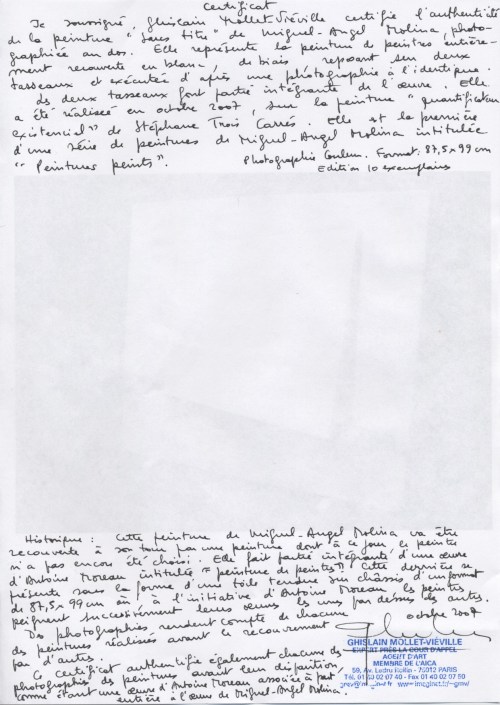 Certificat
Je soussigné, Ghislain Mollet-Viéville certifie l'authenticité
de la peinture "Sans titre" de Miguel-Angel Molina, photo-
graphiée au dos. Elle représente la peinture de peintres entière-
ment recouverte en blanc, de biais reposant sur deux
tasseaux et exécutée d'après une photographie à l'identique.
Les deux tasseaux font partie intégrante de l'œuvre. Elle
a été réalisée en octobre 2007, sur la peinture "quantificateur
existenciel" de Stéphane Trois Carrés. Elle est la première
d'une série de peintures de Miguel-Angel Molina intitulée
"Peintures peints".
Photographie Couleur. Format: 87,5 x 99 cm
Edition 10 exemplaires
Historique : Cette peinture de Miguel-Angel Molina va être
recouverte à son tour par une peinture dont à ce jour le peintre
n'a pas encore été choisi. Elle fait partie intégrante d'une œuvre
d'Antoine Moreau intitulée "peinture de peintres". Cette dernière se
présente sous la forme d'une toile tendue sur châssis d'un format
de 87,5 x 99 cm où à l'initiative d'Antoine Moreau, les peintres
peignent successivement leurs œuvres les uns par dessus les autres.
Des photographies rendent compte de chacune
des peintures réalisées avant le recouvrement
par d'autres.
octobre 2007
Ce certificat authentifie également chacune des
photographies des peintures avant leur disparition,
comme étant une œuvre d'Antoine Moreau associée à part
entière à l'œuvre de Miguel-Angel Molina.
GHISLAIN MOLLET-VIÉVILLE
EXPERT PRÈS LA COUR D'APPEL
AGENT D'ART
MEMBRE DE L'AICA
59, Av. Ledru Rollin - 75012 PARIS
Tél. 01 40 02 07 40 - Fax 01 40 02 07 90